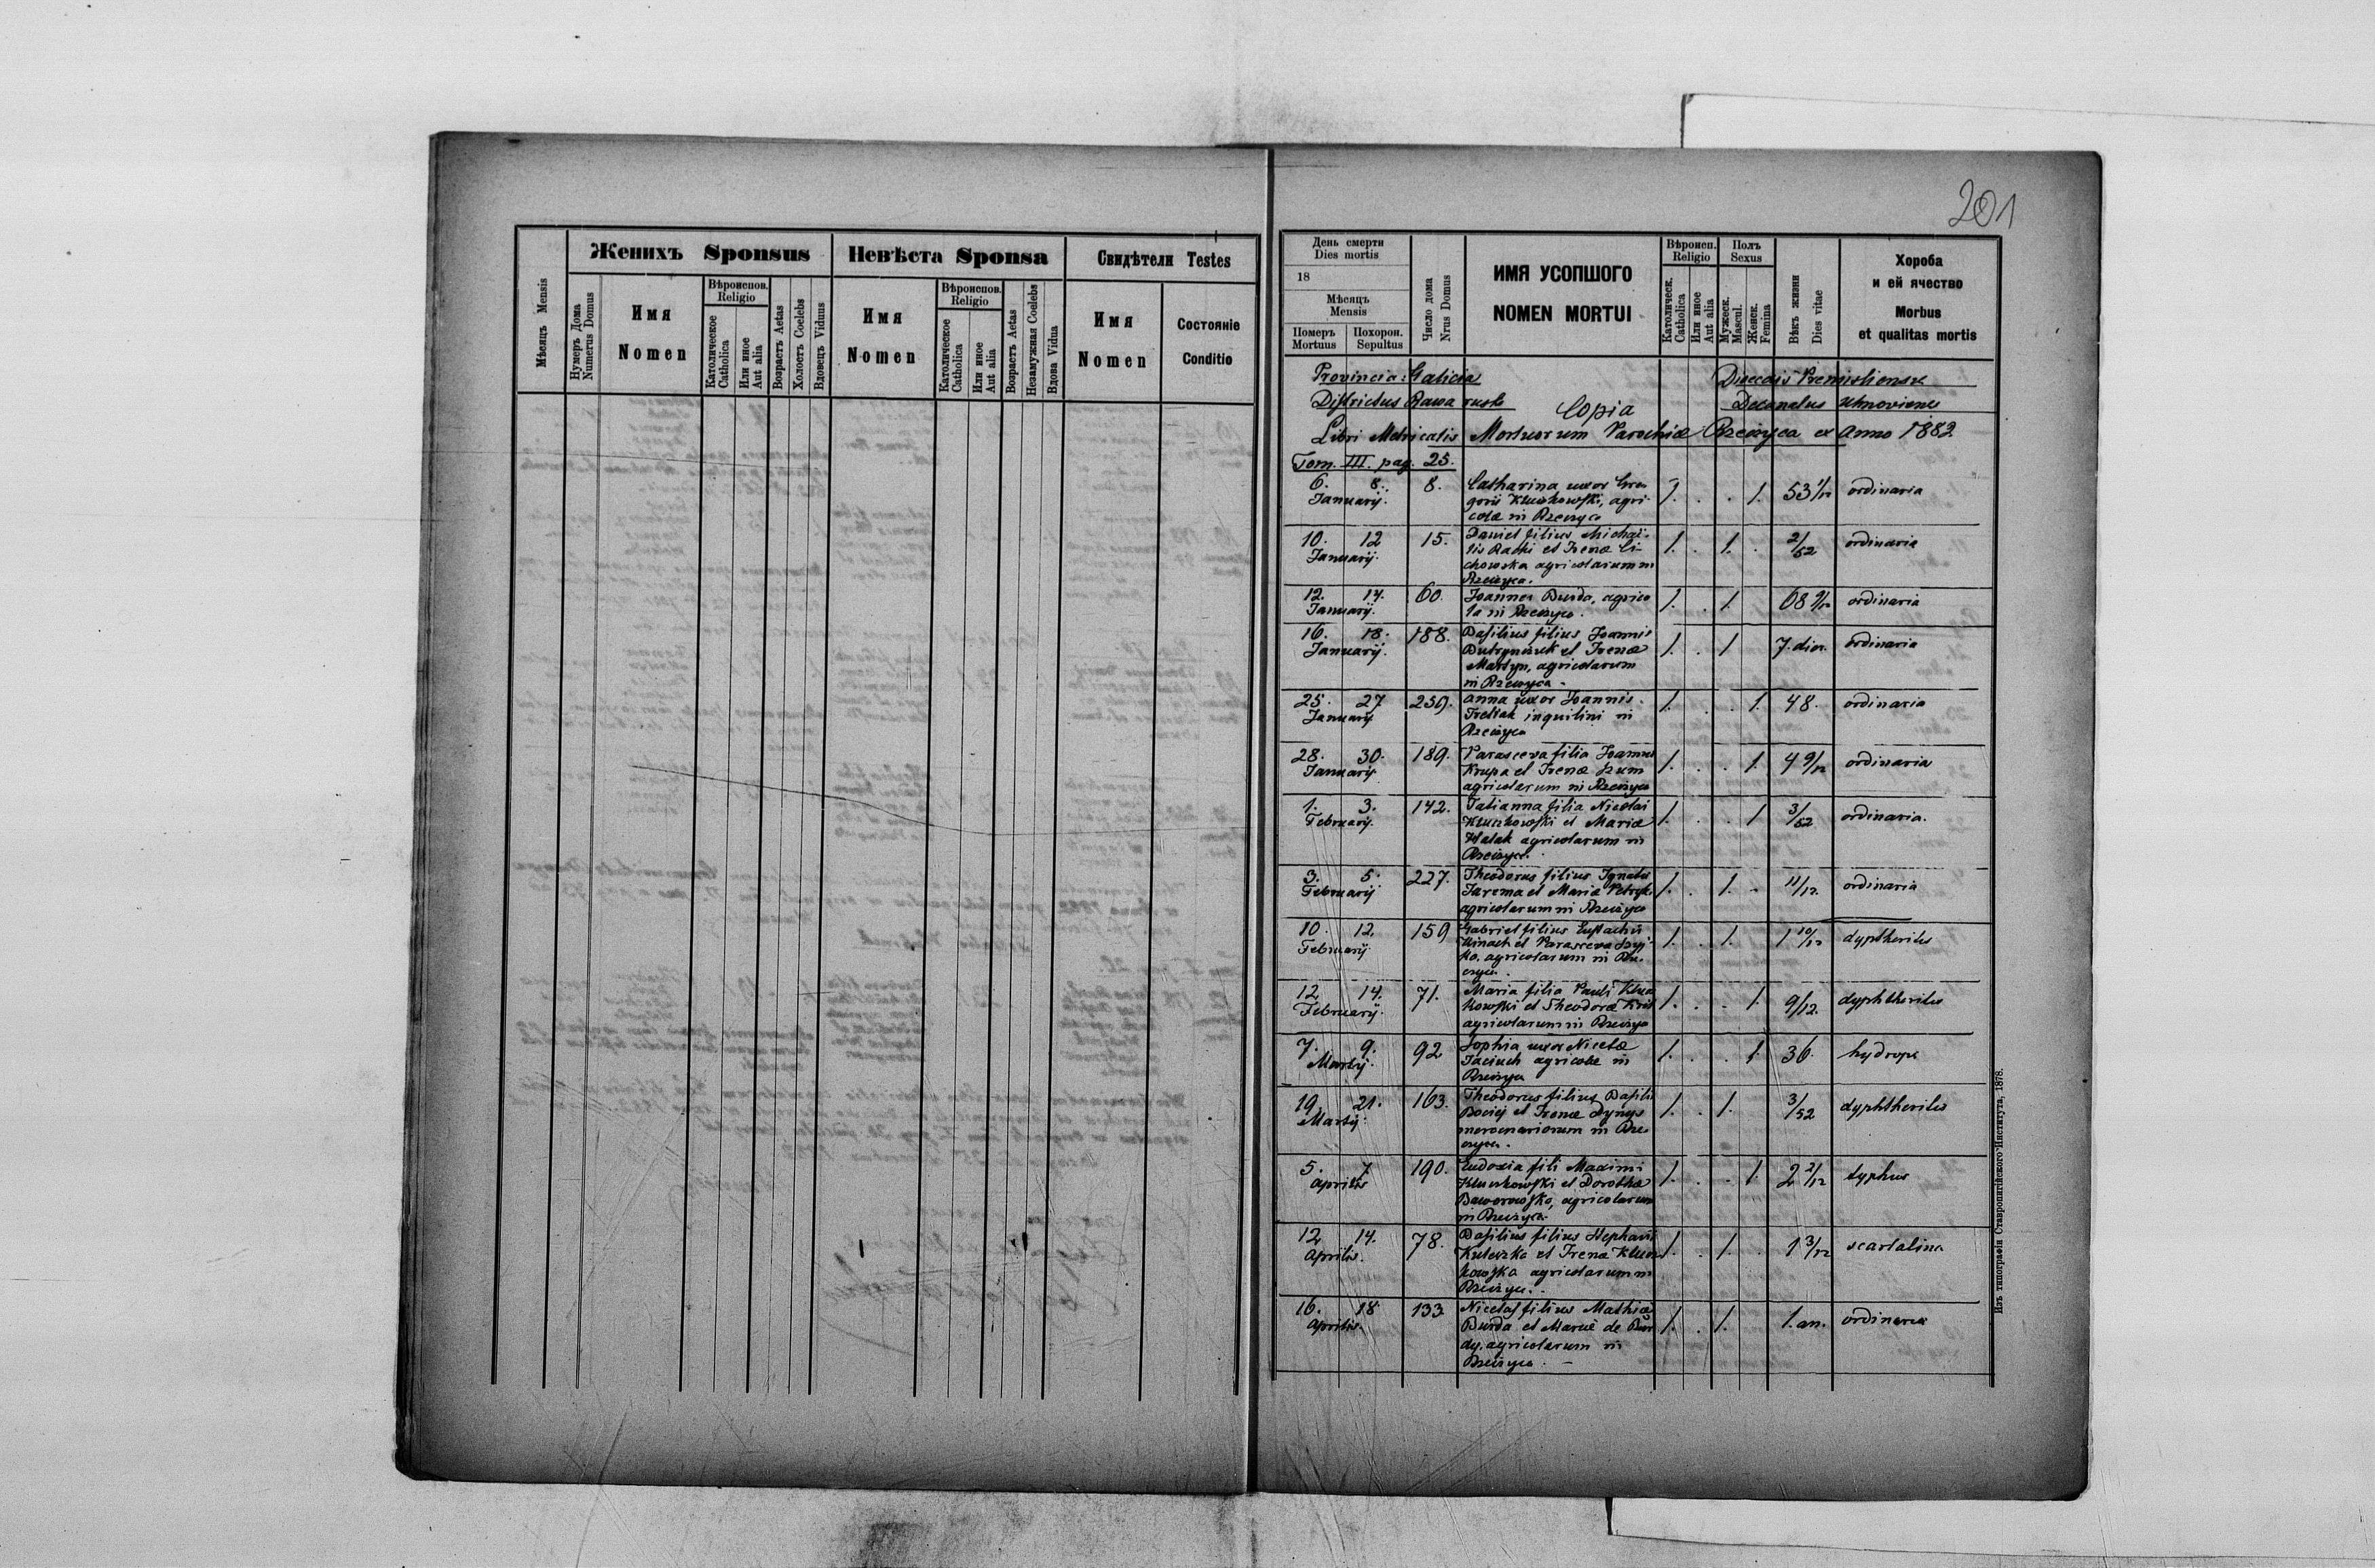 201
Женихъ Sponsus
Невѣста Sponsa
Свидѣтели Testes
Мѣсяцъ Mensis
Нумеръ Дома
Numerus Domus
Имя
Nomen
Вѣроиспов.
Religio
Католическое
Catholica
Или иное
Aut alia
Возрастъ Aetas
Холостъ Coelebs
Вдовецъ Viduus
Имя
Nomen
Вѣроиспов.
Religio
Католическое
Catholica
Или иное
Aut alia
Возрастъ Aetas
Незамужная Coelebs
Вдова Vidua
Имя
Nomen
Состояніе
Conditio
День смерти
Dies mortis
18
Мѣсяцъ
Mensis
Померъ
Mortuus
Похорон.
Sepultus
Число дома
Nrus Domus
ИМЯ УСОПШОГО
NOMEN MORTUI
Вѣроисп.
Religio
Католическ.
Catholica
Или иное
Aut alia
Полъ
Sexus
Мужеск.
Mascul.
Женск.
Femina
Вѣкъ жизни
Dies vitae
Хороба
и ей ячество
Morbus
et qualitas mortis
Provincia: Galicia
Districtus Rawa ruska
Copia
Libri Metricalis Mortuorum Parochiæ Rzeczyca ex Anno 1882
Tom. III. pag. 25.
6. 8. Januarij. 8. Catharina uxor Gre
gorii Kluczkowski, agri
colæ in Rzeczyca 1. . . 1. 53 1/12 ordinaria
10. 12 Januarij. 15. Daniel filius Michaë-
lis Racki et Irenæ Ci-
chowska agricolarum in
Rzeczyca. 1. . 1. . 2/52 ordinaria
12. 14. Januarij. 60. Joannes Burda, agrico
la in Rzeczyca. 1. . 1. 68 ordinaria
16. 18. Januarij. 188. Basilius filius Joannis
et Irenæ
Martyn, agricolarum
in Rzeczyca. 1. . 1 7. dier. ordinaria
25. 27 Januarij 259. Anna uxor Joannis
Tretiak inquilini in
Rzeczyca 1. . . 1. 48. ordinaria
28. 30. Januarij 189. Parasceva filia Joannis
Krupa et Irenæ Szum
agricolarum in Rzeczyca 1. . . 1. 4 9/12 ordinaria
1. 3. Februarij. 142. Tatianna filia Nicolai
Kluczkowski et Mariæ
Halak agricolarum in
Rzeczyca. 1. . . 1 3/52 ordinaria.
3. 5. Februarij 227. Theodorus filius Ignatii
Jarema et Mariæ
agricolarum in Rzeczyca 1. . 1. . 11/12. ordinaria
10. 12. Februarij 159 Gabriel filius Eustachii
Kinach et Parasceva
agricolarum in Rze-
czyca. 1. . 1. 1 10/12 dyptheritis
12 14. Februarij. 71. Maria filia Pauli Klucz
kowski et Theodoræ
agricolarum in Rzeczyca 1. . . 1. 9/12. dyphtheritis
7. 9. Martij. 92 Sophia uxor Nicetæ
Jaciuch agricolæ in
Rzeczyca 1. . . 1. 36. hydrops
19. 21. Martij. 163. Theodorus filius Basilii
et Irenæ
mercenariorum in Rze-
czyca. 1. . 1. 3/52 dyphtheritis
5. 7 Aprilis 190. Eudoxia fili Maximi
Kluczkowski et Dorotheæ
Baworowska, agricolarum
in Rzeczyca. 1. . . 1. 2 2/12 typhus
12 14. Aprilis. 78. Basilius filius Stephani
Kuleczka et Irenæ Klucz
kowska agricolarum in
Rzeczyca. 1. . 1. . 1 3/12 scarlatina
16. 18 Aprilis. 133 Nicetas filius Mathiæ
Burda et Mariæ de Bur
dy. agricolarum in
Rzeczyca. 1. . 1. 1. an. ordinaria
Изъ типографіи Ставропигійского Института, 1878.